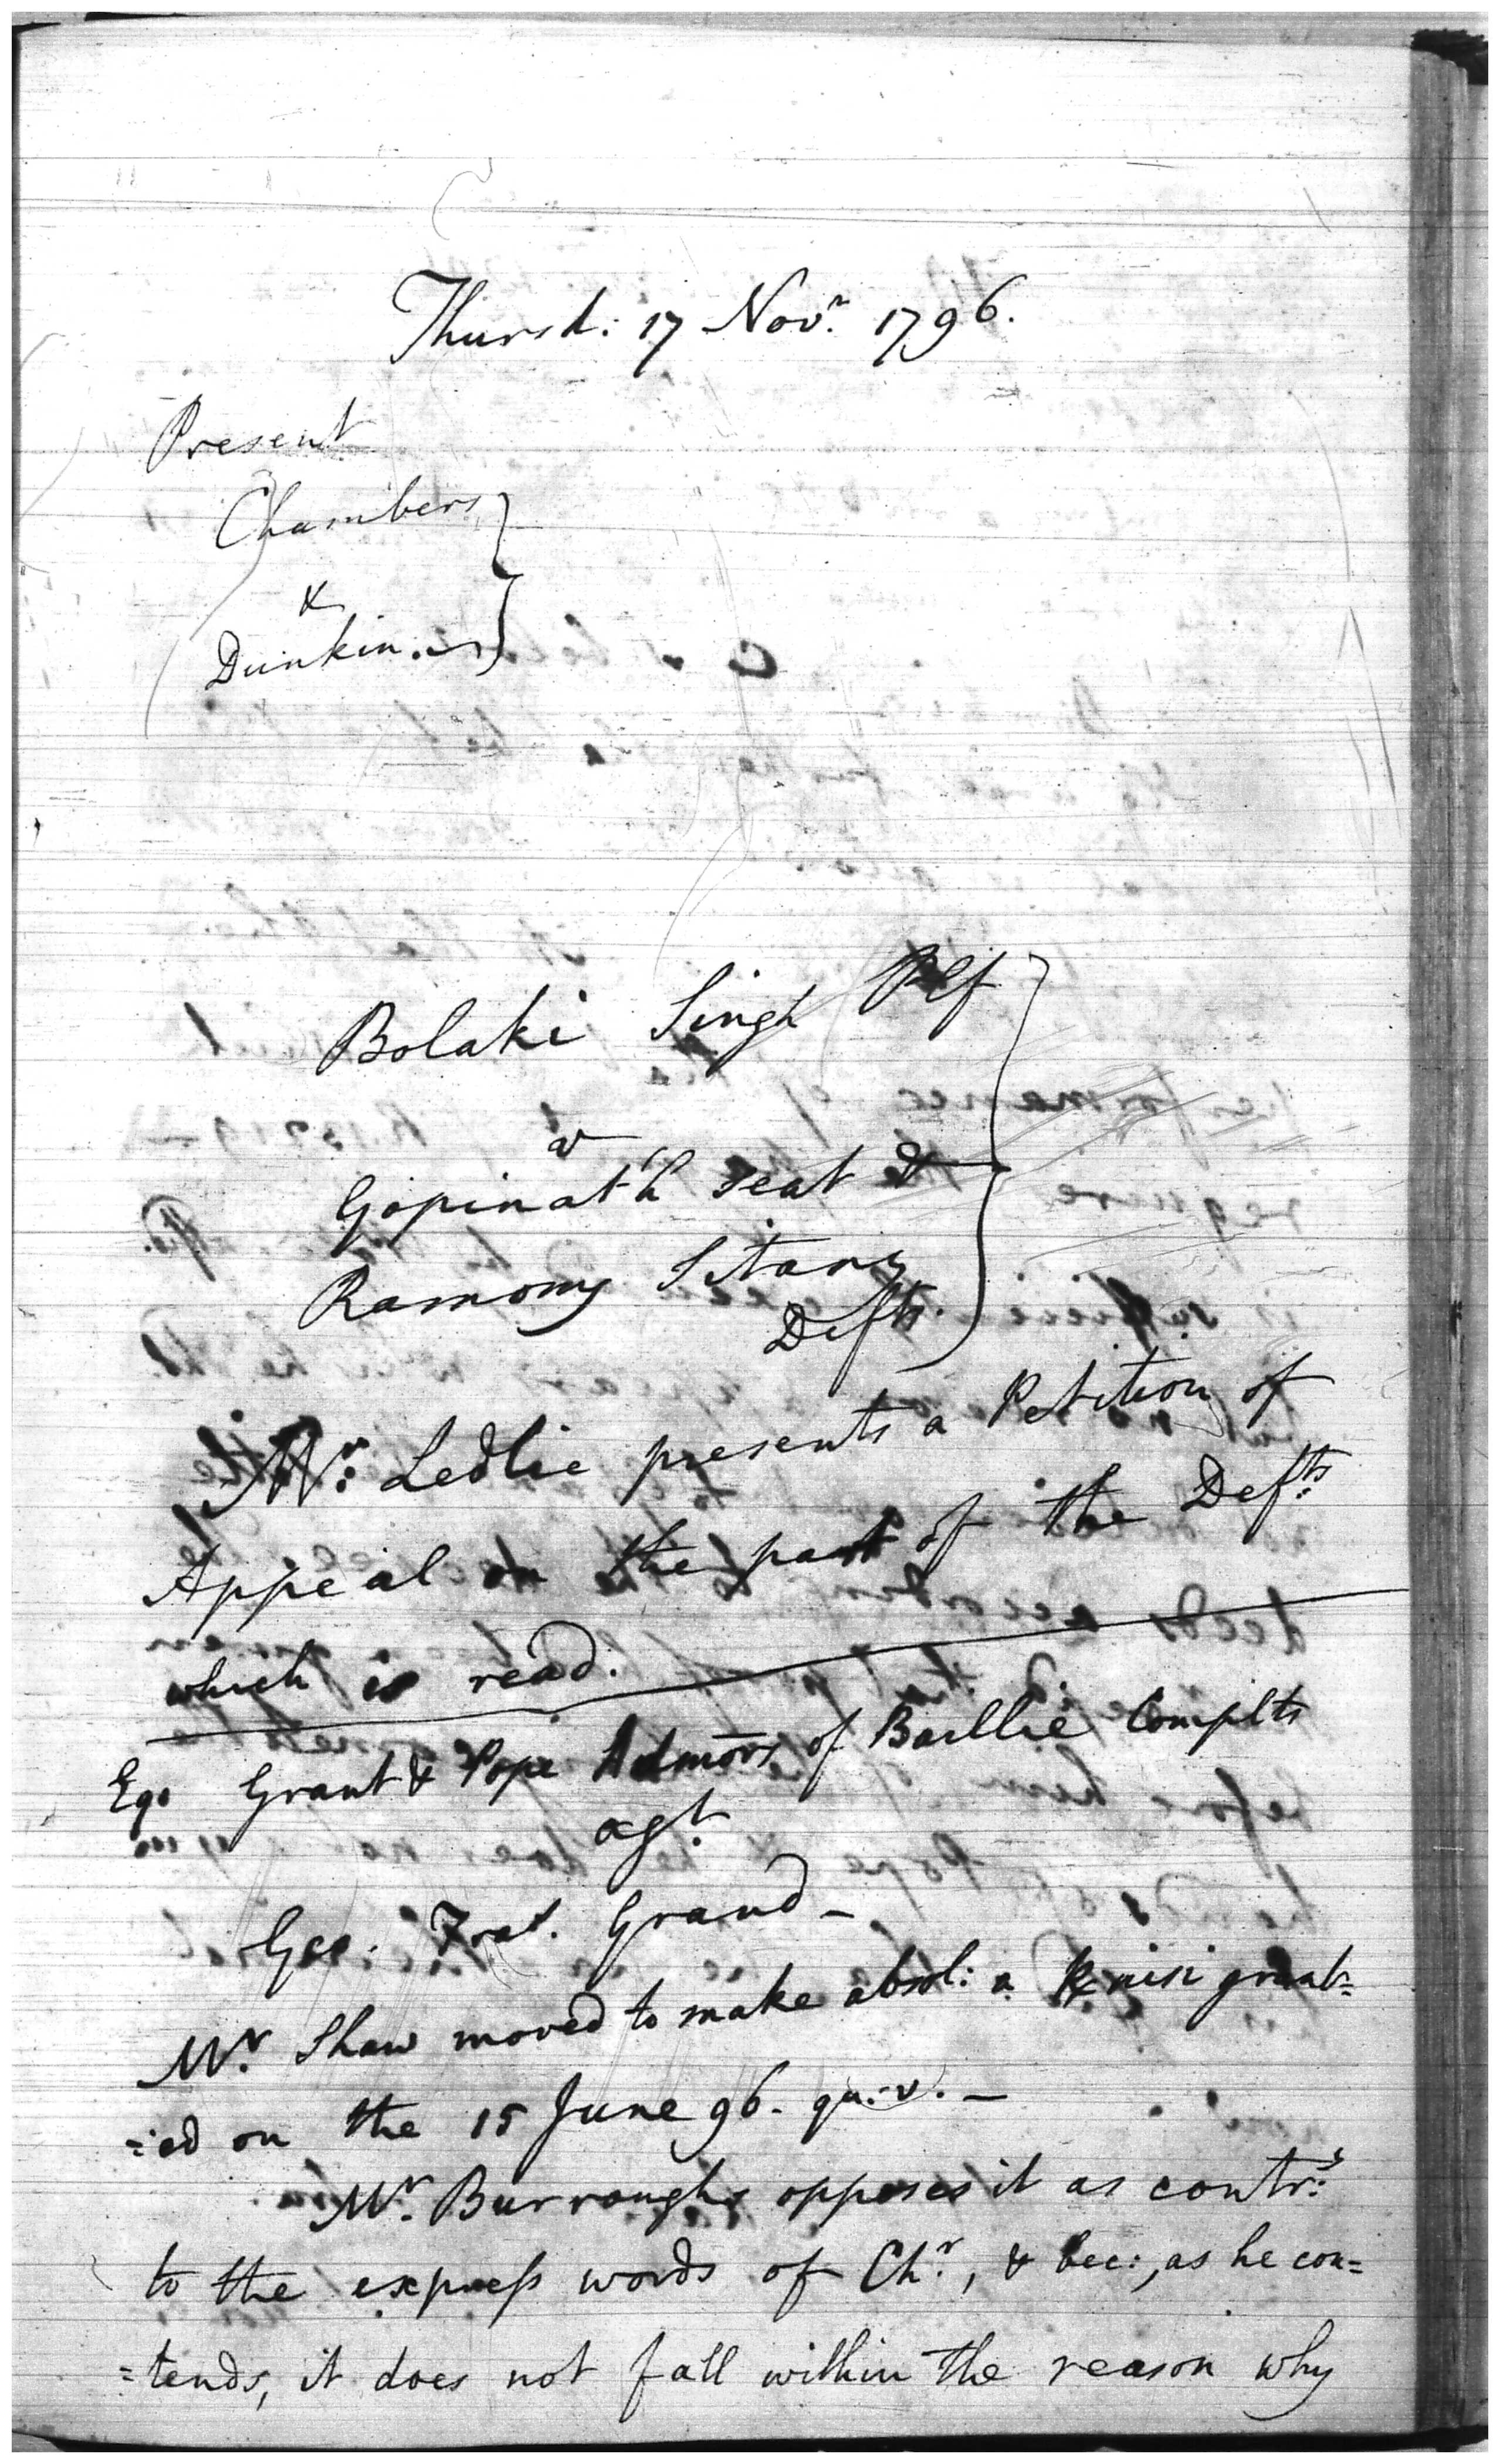 Thursd: 17 Novr. 1796.
Present
Chambers
&
Dunkin.
Bolaki Singh Plf
v
Gopinat'h Seat &
Ramony
Defts.
Mr: Ledlie presents a Petition of
Appeal on the part of the Defts:
which is read.
Eqo Grant & Pope Admors. of Baillie Complts
agt.
Geo: Fras. Grand –
Mr. Shaw moved to make absol: a R nisi grant=
=ed on the 15 June 96. qu: v. –
Mr. Burroughs opposes it as contr:y
to the express words of Chr., & bec:, as he con=
=tends, it does not fall within the reason why